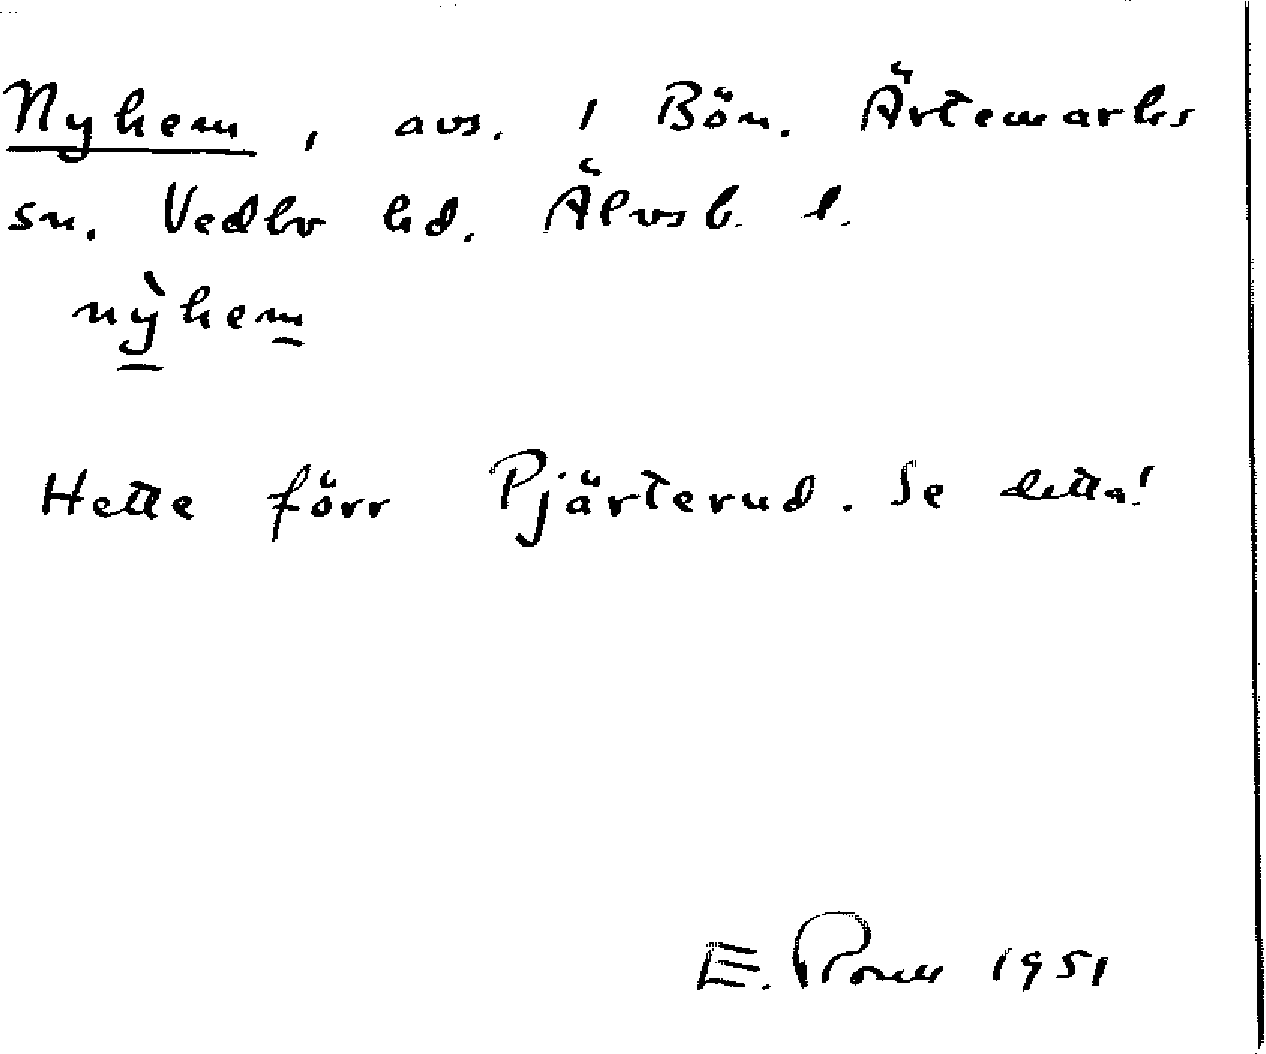 Nyhem, avs. i Bön. Ärtemarks
sn. Vedbo hd. Älvsb. l.
nỳhem
Hette förr Pjärterud. Se detta!
E. 1951